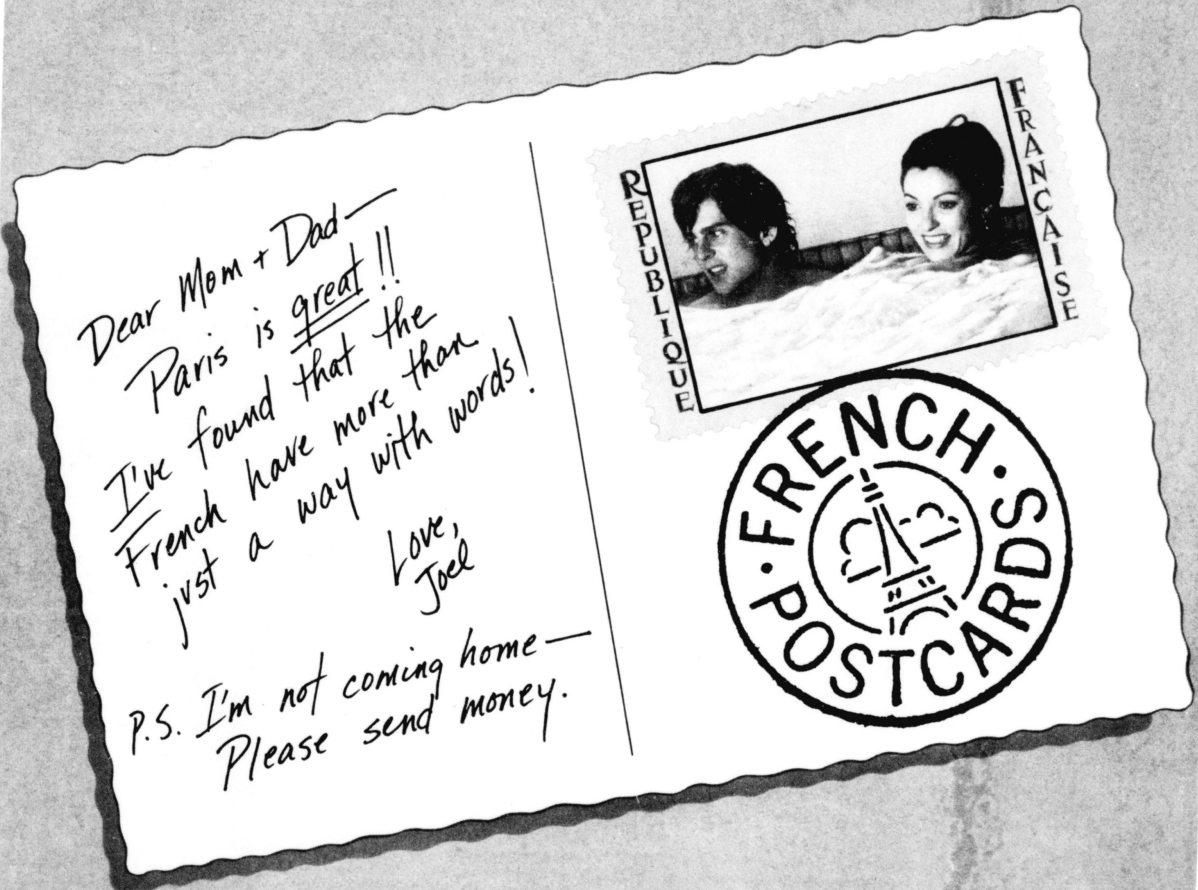 Dear Mom + Dad—
Paris is great!!
I've found that the
French have more than
just a way with words!
Love,
Joel
P.S. I'm not coming home—
Please send money.
REPUBLIQUE
FRANÇAISE
• FRENCH •
POSTCARDS